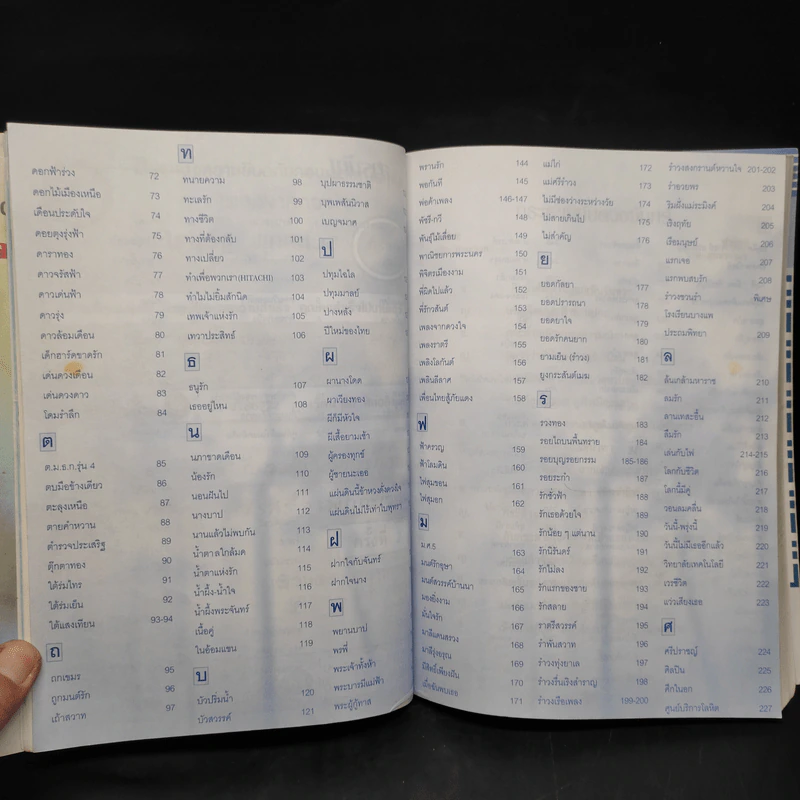 ดอกฟ้าร่วง 72
ดอกไม้เมืองเหนือ 73
เดือนประดับใจ 74
คอยตุงรุ่งฟ้า 75
ดาราทอง 76
ดาวจรัสฟ้า 77
ดาวเด่นฟ้า 78
ดาวรุ่ง 79
ดาวล้อมเดือน 80
เด็กฮาร์ดขาดรัก 81
เด่นดวงเดือน 82
เด่นดวงดาว 83
โดมรำลึก 84
ต
ต.ม.ธ.ก.รุ่น 4 85
ตบมือข้างเดียว 86
ตะลุงเหนือ 87
ตายคำหวาน 88
ตำรวจประเสริฐ 89
ตุ๊กตาทอง 90
ใต้ร่มไทร 91
ใต้ร่มเย็น 92
ใต้แสงเทียน 93-94
ถ
ถกเขมร 95
ถูกมนต์รัก 96
เถ้าสวาท 97
ท
ทนายความ 98
ทะเลรัก 99
ทางชีวิต 100
ทางที่ต้องกลับ 101
ทางเปลี่ยว 102
ทำเพื่อพวกเรา(HITACHI) 103
ทำไมไม่ยิ้มสักนิด 104
เทพเจ้าแห่งรัก 105
เทวาประสิทธ์ 106
ธ
ธนูรัก 107
เธออยู่ไหน 108
น
นภาขาดเดือน 109
น้องรัก 110
นอนฝันไป 111
นางบาป 112
นานแล้วไม่พบกัน 113
น้ำตาลใกล้มด 114
น้ำตาแห่งรัก 115
น้ำผึ้ง-น้ำใจ 116
น้ำผึ้งพระจันทร์ 117
เนื้อคู่ 118
ในอ้อมแขน 119
บ
บัวปริ่มน้ำ 120
บัวสวรรค์ 121
บุปผาธรรมชาติ
บุพเพสันนิวาส
เบญจมาศ
ป
ปทุมไฉไล
ปทุมมาลย์
ปางหลัง
ปีใหม่ของไทย
ผ
ผานางโดด
ผาเวียงทอง
ผีก็มีหัวใจ
ผีเสื้อยามเช้า
ผู้ครองทุกข์
ผู้ชายนะเธอ
แผ่นดินนี้ข้าหวงดั่งดวงใจ
แผ่นดินไม่ไร้เท่าใบพุทรา
ฝ
ฝากใจกับจันทร์
ฝากใจนาง
พ
พยานบาป
พรพี่
พระเจ้าทั้งห้า
พระบารมีแม่ฟ้า
พระผู้กู้ทาส
พรานรัก 144
พอกันที 145
พ่อค้าเพลง 146-147
พัชรี-กวี 148
พันธุ์ไม้เลื้อย 149
พาณิชยการพระนคร 150
พิจิตรเมืองงาม 151
พี่ผิดไปแล้ว 152
พี่รักวสันต์ 153
เพลงจากดวงใจ 154
เพลงราตรี 155
เพลิงโลกันต์ 156
เพลินลีลาศ 157
เพื่อนไทยสู้ภัยแดง 158
ฟ
ฟ้าครวญ 159
ฟ้าโลมดิน 160
ไฟสุมขอน 161
ไฟสุมอก 162
ม
ม.ศ.5 163
มนต์รักอุษา 164
มนต์สวรรค์บ้านนา 165
มองยิ่งงาม 166
มั่นใจรัก 167
มาลีแดนสรวง 168
มาลีรุ่งอรุณ 169
มีสิทธิ์เพียงฝัน 170
เมื่อฉันพบเธอ 171
แม่ไก่ 172
แม่ศรีรำวง 173
ไม่มีช่องว่างระหว่างวัย 174
ไม่สายเกินไป 175
ไม่สำคัญ 176
ย
ยอดกัลยา 177
ยอดปรารถนา 178
ยอดยาใจ 179
ยอดรักคนยาก 180
ยามเย็น (รำวง) 181
ยูงกระสันต์เมฆ 182
ร
รวงทอง 183
รอยไถบนพื้นทราย 184
รอยบุญรอยกรรม 185-186
รอยระกำ 187
รักชั่วฟ้า 188
รักเธอด้วยใจ 189
รักน้อย ๆ แต่นาน 190
รักนิรันดร์ 191
รักไม่ลง 192
รักแรกของชาย 193
รักสลาย 194
ราตรีสวรรค์ 195
รำพันสวาท 196
รำวงทุ่งยาเล 197
รำวงรื่นเริงสำราญ 198
รำวงเรือเพลง 199-200
รำวงสงกรานต์หรรษาใจ 201-202
รำอวยพร 203
ริมฝั่งแม่ระมิงค์ 204
เริงฤทัย 205
เรือมนุษย์ 206
แรกเจอ 207
แรกพบสบรัก 208
รำวงชวนรำ พิเศษ
โรงเรียนบางแพ
ประถมพิทยา 209
ล
ล้นเกล้ามหาราช 210
ลมรัก 211
ลานเทสะอื้น 212
ลืมรัก 213
เล่นกับไฟ 214-215
โลกกับชีวิต 216
โลกนี้มีคู่ 217
วอนลมคลื่น 218
วันนี้-พรุ่งนี้ 219
วันนี้ไม่มีเธออีกแล้ว 220
วิทยาลัยเทคโนโลยี 221
เวรชีวิต 222
แว่วเสียงเธอ 223
ศ
ศรีปราชญ์ 224
ศิลปิน 225
ศึกในอก 226
ศูนย์บริการโลหิต 227